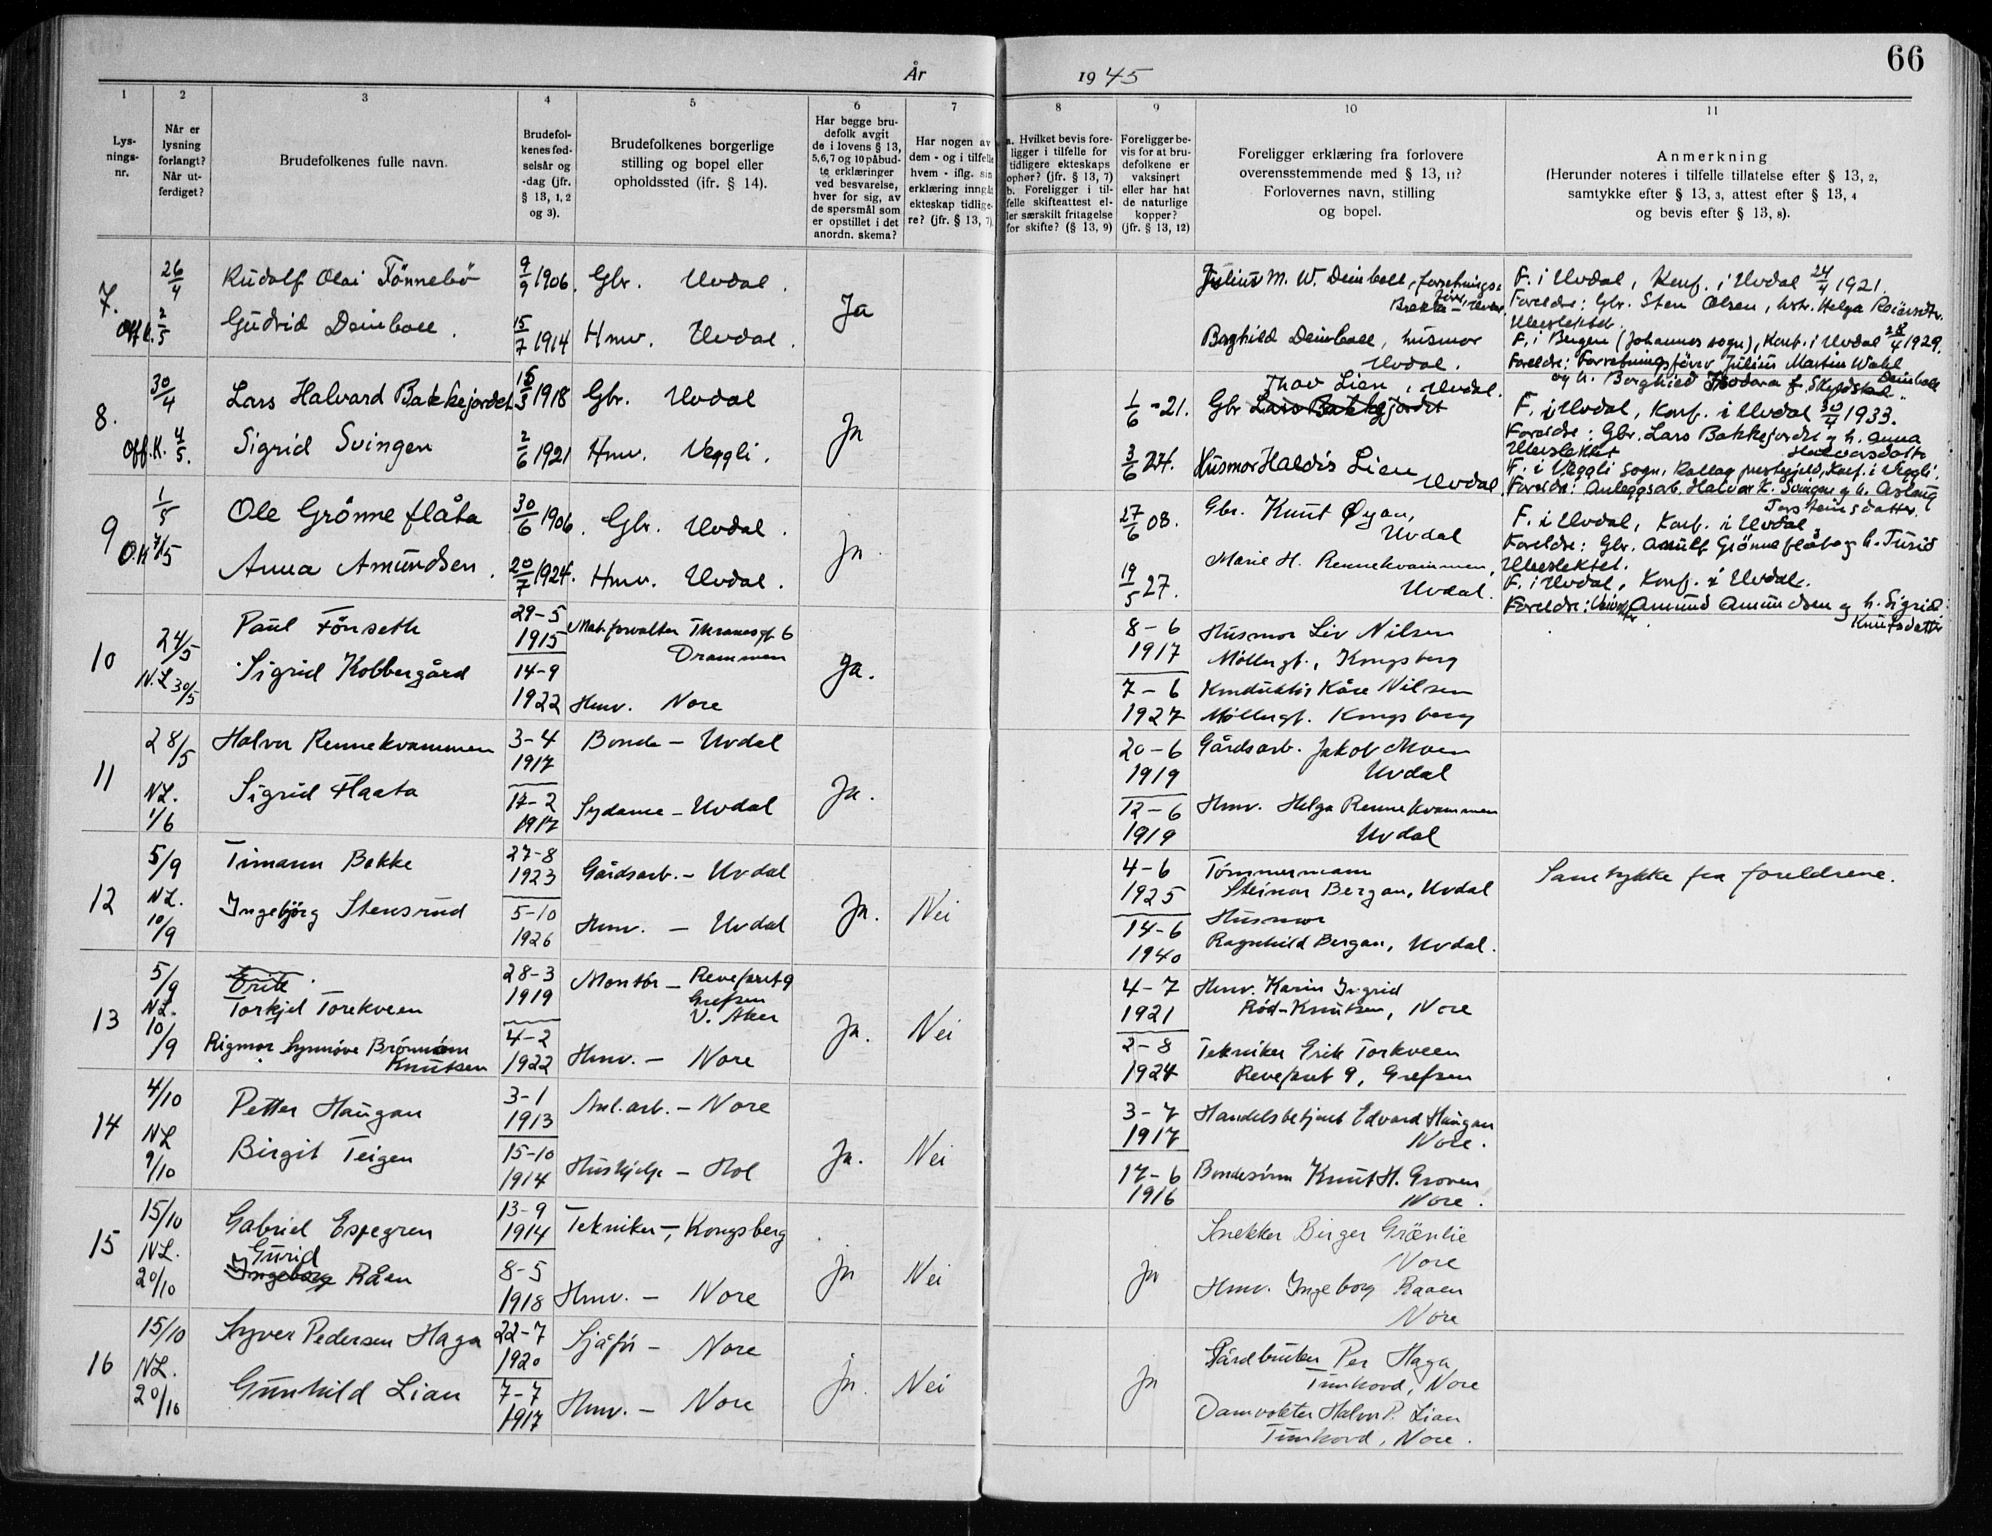 66
År 1945
1 2 3 4 5 6 7 8 9 10 11
Lys-
nings-
nr.
Når er
lysning
forlangt?
Når ut-
ferdiget?
Brudefolkenes fulle navn.
Brudefol-
kenes fød-
selsår og
-dag (jfr.
§ 13, 1, 2
og 3).
Brudefolkenes borgerlige
stilling og bopel eller
opholdssted (ifr. § 14).
Har begge bru-
defolk avgit
de i lovens § 13,
5,6,7 og 10 påbud-
te erklæringer
ved besvarelse,
hver for sig, av
de spørsmål som
er opstillet i det
anordn. skema?
Har nogen av
dem - og i tilfelle
hvem - iflg. sin
erklæring inngått
ekteskap tidlige-
re? (jfr. § 13, 7).
a. Hvilket bevis fore-
ligger i tilfelle for
tidligere ekteskaps
ophør? (jfr. § 13, 7)
b. Foreligger i til-
felle skifteattest el-
ler særskilt fritagelse
for skifte? (§ 13, 9)
Foreligger be-
vis for at bru-
defolkene er
vaksinert
eller har hat
de naturlige
kopper?
(jfr. § 13, 12)
Foreligger erklæring fra forlovere
overensstemmende med § 13, 11?
Forlovernes navn, stilling
og bopel.
Anmerkning
(Herunder noteres i tilfelle tillatelse efter § 13, 2,
samtykke efter § 13, 3, attest efter § 13, 4
og bevis efter § 13, 8).
7. 26/4 Rudolf Olai Tønnebø 9/9 1906. Gbr. Uvdal. Ja
Off.k. 2/5 Gudrid Deinboll. 15/7 1914 Hmv. Uvdal.
Julius M. W. Deinboll, forretnings-
fører, Uvdal
Borghild Deinboll, husmor
Uvdal.
F. i Uvdal, Konf. i Uvdal 24/4 1921.
Foreldre: Gbr. Sten Olsen, hstr. Helga
Ulleslektet.
F. i Bergen (Johannes sogn), Konf. i Uvdal 28/4 1929.
Foreldre: Forretningsfører Julius Martin Wahl
Deinboll
og h. Borghild
8. 30/4 Lars Halvard Bakkejordet 15/3 1918 Gbr. Uvdal Ja
Off.K. 4/5. Sigrid Svingen 2/6 1921 Hmv. Veggli.
1/6 -21. Gbr. Thov Lien, Uvdal.
Lars Bakkejordet
3/6 27. Husmor Haldis Lien
Uvdal.
F. i Uvdal, Konf. i Uvdal 30/4 1933.
Foreldre: Gbr. Lars Bakkejordet og h. Anna
Halvorsdatter
Ulleslektet
F. i Veggli sogn, Rollag prestegjeld, Konf. i Veggli.
Foreldre: Anleggsarb. Halvor K. Svingen og h. Aslaug
Torsteinsdatter.
9 1/5 Ole Grønneflåta 30/6 1906. Gbr. Uvdal. Ja
O.K 7/5 Anna Amundsen. 20/7 1924. Hmv. Uvdal.
27/6 08. Gbr. Knut Øygn,
Uvdal
19/5 27. Marie H. Rennekvammen,
Uvdal.
F. i Uvdal, Konf. i Uvdal
Foreldre: Gbr. Arnulf Grønneflåta og h. Turid
Ulleslektet.
F. i Uvdal, Konf. i Uvdal.
Foreldre: Amund Amundsen og h. Sigrid
Knutsdatter
10 24/5 Paul Tönseth 29-5 1915 Mat.forvalter Thranesgt. 6
Drammen Ja.
N.L 30/5 Sigrid Kobbergård 14-9 1922 Hmv. Nore
8-6 1917 Husmor Liv Nilsen
Møllergt., Kongsberg
7-6 1927 Konduktør Kåre Nilsen
Møllergt. Kongsberg
11 28/5 Halvor Rennekvammen 3-4 1917 Bonde - Uvdal Ja.
NL. 1/6 Sigrid Flaata 17-2 1917 Sydame - Uvdal
20-6 1919 Gårdsarb. Jakob Moen
Uvdal
12-6 1919 Hmv. Helga Rennekvammen
Uvdal
12 5/9 Timann Bakke 27-8 1923 Gårdsarb. - Uvdal Ja. Nei
NL. 10/9 Ingebjörg Stensrud 5-10 1926 Hmv. - Uvdal
4-6 1925 Tømmermann
Steinar Bergan, Uvdal
14-6 1940 Husmor
Ragnhild Bergan, Uvdal.
Samtykke fra foreldrene.
13 5/9 Erik
NL. Torkjel Torekveen 28-3 1919 Montør - Revefaret 9
Grefsen
V. Aker Ja. Nei
10/9 Rigmor Synnøve Brönnum
Knutsen 4-2 1922 Hmv. - Nore
4-7 1921 Hmv. Karin Ingrid
Rød-Knutsen, Nore
2-8 1924 Tekniker Erik Torkveen
Revefaret 9, Grefsen
14 4/10 Petter Haugan 3-1 1913 Anl.arb. - Nore Ja. Nei
NL 9/10 Birgit Teigen 15-10 1914 Hushjelp - Hol
3-7 1917 Handelsbetjent Edvard Haugan
Nore.
17-6 1916 Bondesønn Knut H. Groven
Nore.
15 15/10 Gabriel Espegren 13-9 1914 Tekniker -, Kongsberg Ja Nei
NL. Gurid
20/10 Ingeborg Råen 8-5 1918 Hmv. - Nore
Ja Snekker Birger Grønlie
Nore
Hmv. Ingeborg Raaen
Nore
16 15/10 Syver Pedersen Haga 22-7 1920 Sjåfør - Nore Ja. Nei
NL. 20/10 Gunhild Lian 7-7 1917 Hmv. - Nore
Ja Gårdbruker Per Haga
Tunhovd, Nore
Damvokter Halvor P. Lian
Tunhovd, Nore.